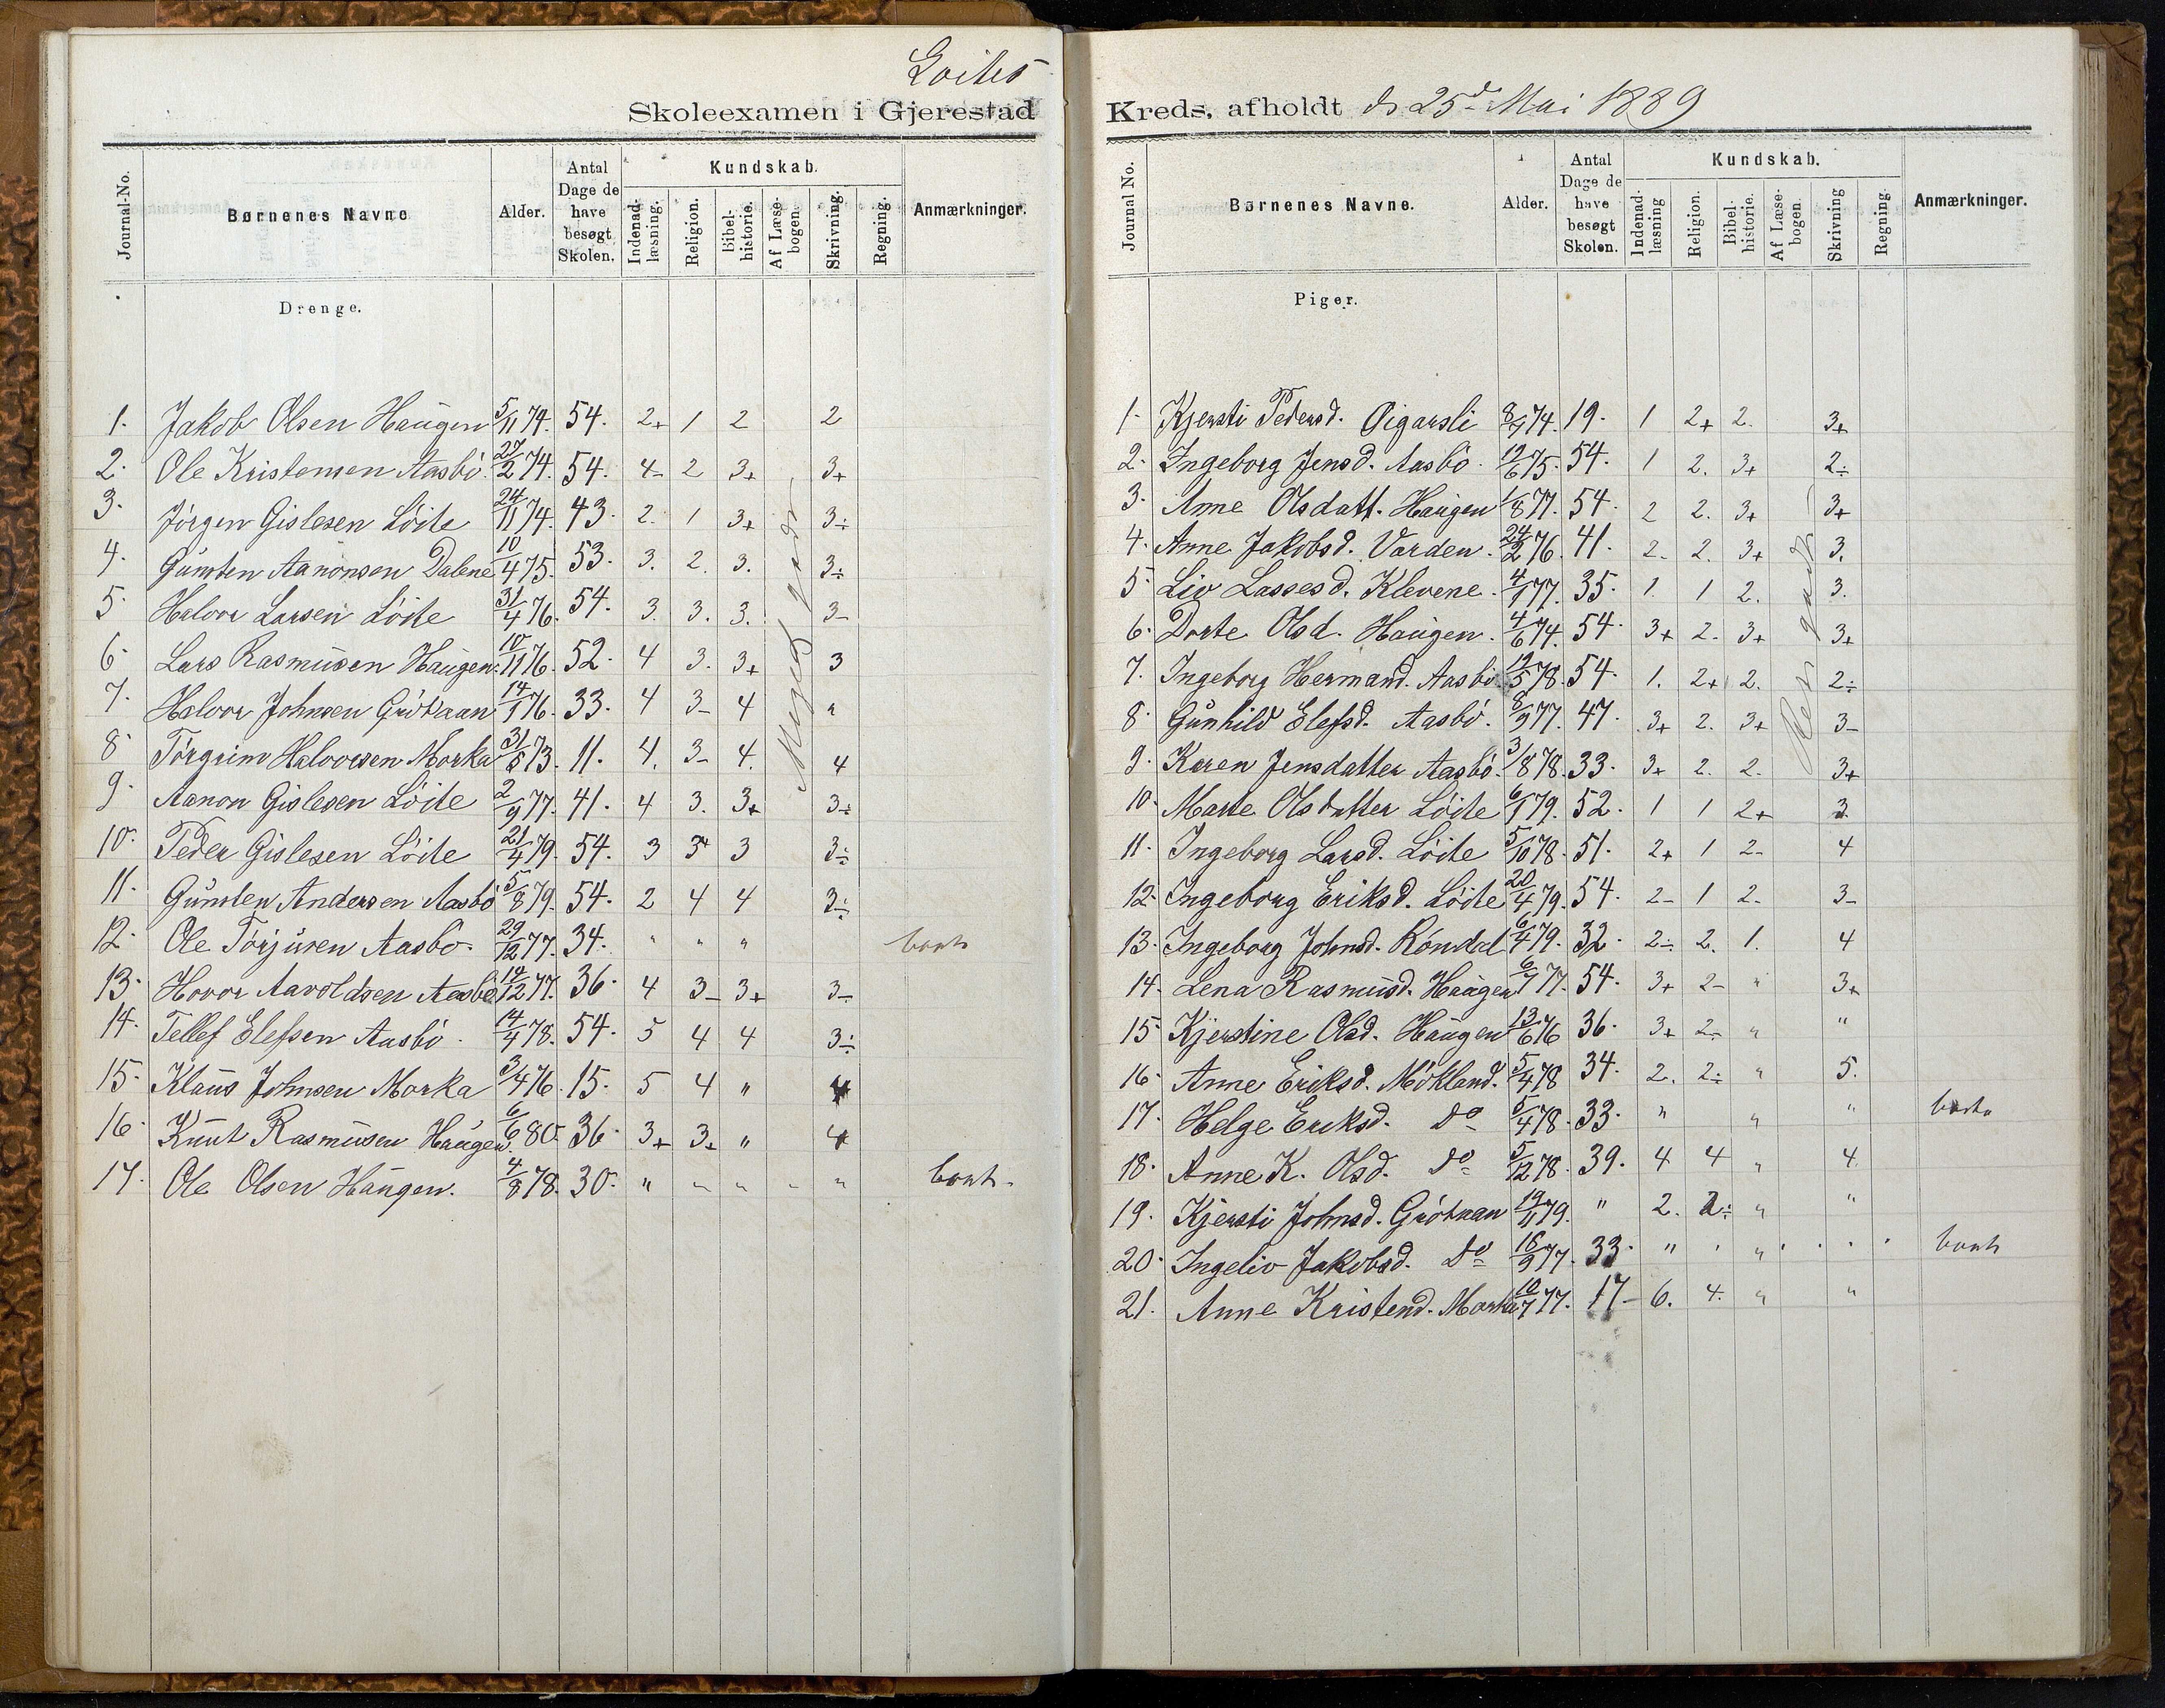 Loites
Skoleexamen i Gjerestad
Journal-No. | Børnenes Navne | Alder. | Antal Dage de have besøgt Skolen. | Kundskab. | Indenad-læsning. | Religion. | Bibel-historie. | Af Læse-bogen. | Skrivning. | Regning. | Anmærkninger.
Drenge.
1. Jakob Olsen Haugen 5/11 74. 54. 2+ 1 2 2
2. Ole Kristensen Aasbö. 27/2 74. 54. 4- 2 3+ 3+
3. Jörgen Gislesen Löite 24/11 74. 43. 2. 1 3+ 3÷
4. Gunsten Aanonsen Dalene 10/4 75. 53. 3. 2. 3. 3÷
5. Halvor Larsen Löite 31/4 76. 54. 3. 3. 3. 3-
6. Lars Rasmusen Haugen. 10/11 76. 52. 4 3. 3+ 3
7. Halvor Johnsen Grötkaan 14/1 76. 33. 4 3- 4 "
8. Törgrim Halvorsen Morka 31/8 73. 11. 4. 3- 4. 4
9. Aanon Gislesen Löite 2/9 77. 41. 4 3. 3+ 3÷
10. Peder Gislesen Löite 21/4 79. 54. 3 3+ 3 3÷
11. Gunsten Andersen Aasbö 5/8 79. 54. 2 4 4 3÷
12. Ole Törjusen Aasbö. 29/12 77. 34. " " " borte
13. Hovor Aavoldsen Aasbö. 14/12 77. 36. 4 3- 3+ 3-
14. Tellef Elefsen Aasbö. 14/4 78. 54. 5 4 4 3÷
15. Klaus Johnsen Morka 3/4 76. 15. 5 4 " 4
16. Knut Rasmusen Haugen. 6/6 80. 36. 3+ 3+ " 4
17. Ole Olsen Haugen. 4/8 78. 30. " " " " " borte
Meget godt
Kreds, afholdt d. 25d Mai 1889
Journal No. | Børnenes Navne. | Alder. | Antal Dage de have besøgt Skolen. | Kundskab. | Indenad-læsning | Religion. | Bibel-historie. | Af Læse-bogen. | Skrivning | Regning. | Anmærkninger.
Piger.
1. Kjersti Pedersd. Öigarsli 8/7 74. 19. 1 2+ 2. 3+
2. Ingeborg Jensd. Aasbö. 19/6 75. 54. 1 2. 3+ 2÷
3. Anne Olsdatt. Haugen 1/8 77. 54. 2 2. 3+ 3+
4. Anne Jakobsd. Varden. 24/2 76. 41. 2- 2. 3+ 3.
5. Liv Lassesd. Klevene. 4/1 77. 35. 1. 1 2. 3.
6. Dorte Olsd. Haugen. 4/6 74. 54. 3+ 2. 3+ 3+
7. Ingeborg Hermand. Aasbö 19/5 78. 54. 1. 2+ 2. 2÷
8. Gunhild Elefsd. Aasbö. 8/9 77. 47. 3+ 2. 3+ 3-
9. Karen Jensdatter Aasbö. 3/8 78. 33. 3+ 2. 2. 3+
10. Marte Olsdatter Löite 6/1 79. 52. 1 1 2+ 3.
11. Ingeborg Larsd. Löite 5/10 78. 51. 2+ 1 2- 4
12. Ingeborg Eriksd. Löite 20/4 79. 54. 2- 1 2. 3-
13. Ingeborg Johnsd. Röndal 6/4 79. 32. 2÷ 2. 1. 4
14. Lena Rasmusd. Haugen 6/7 77. 54. 3+ 2- " 3+
15. Kjerstine Olsd. Haugen 13/6 76 36. 3+ 2- " "
16. Anne Eriksd. Mökland. 5/4 78 34. 2. 2÷ " 5.
17. Helge Eriksd. Do 5/4 78. 33. " " " borte
18. Anne K. Olsd. Do 5/12 78. 39. 4 4 " 4
19. Kjersti Johnsd. Grötkaan 19/11 79. " 2. 2÷ " "
20. Ingeliv Jakobsd. Do 16/9 77. 33. " " " borte
21. Anne Kristend. Morka 10/7 77. 17- 6. 4. " "
godt